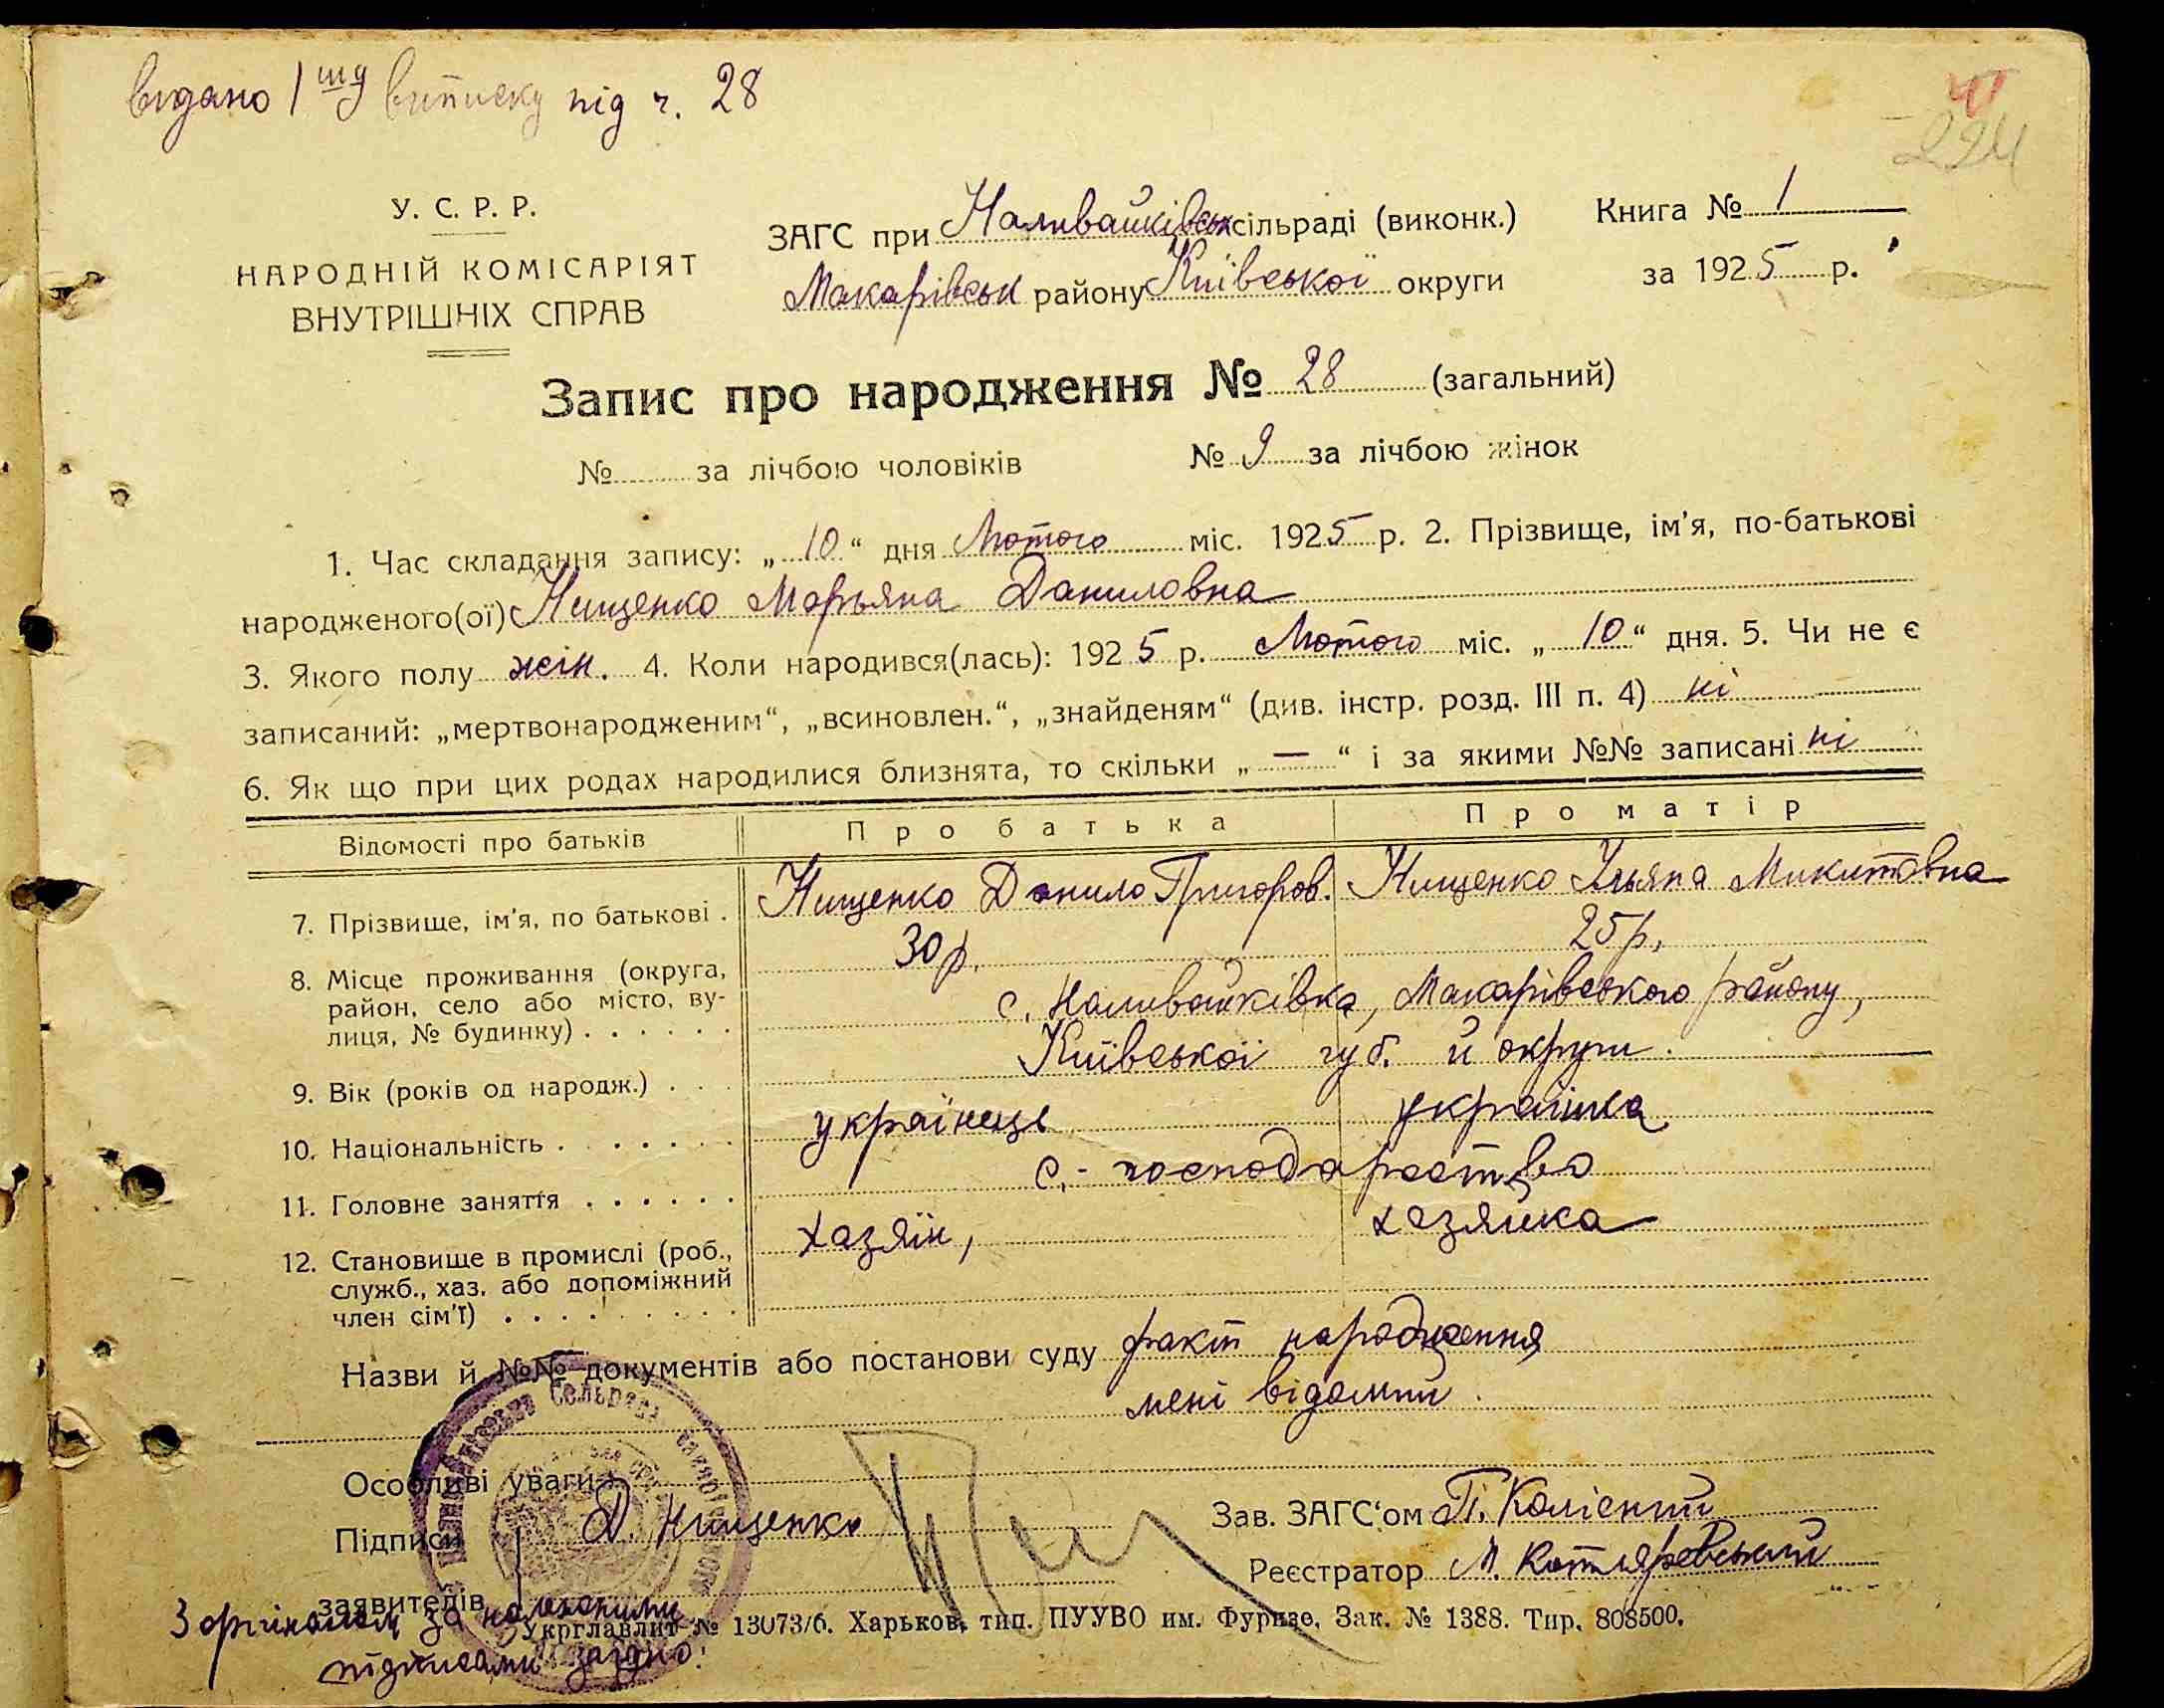 видано 1шу виписку під ч. 28
224
У. С. Р. Р.
НАРОДНІЙ КОМІСАРІЯТ
ВНУТРІШНІХ СПРАВ
ЗАГС при Наливайківськ сільраді (виконк.)
Макарівськ району Київської округи
Книга № 1
за 1925 р.
Запис про народження № 28 (загальний)
№ за лічбою чоловіків № 9 за лічбою жінок
1. Час складання запису: „10“ дня Лютого міс. 1925 р. 2. Прізвище, ім'я, по-батькові
народженого(ої) Нищенко Марьяна Даниловна
3. Якого полу жін. 4. Коли народився(лась): 1925 р. Лютого міс. „10“ дня. 5. Чи не є
записаний: „мертвонародженим“, „всиновлен.“, „знайденям“ (див. інстр. розд. III п. 4) ні
6. Як що при цих родах народилися близнята, то скільки „—“ і за якими №№ записані ні
Відомості про батьків Про батька Про матір
7. Прізвище, ім'я, по батькові . Нищенко Данило Григоров. Нищенко Ульяна Микитовна
30 р. 25 р.
8. Місце проживання (округа,
район, село або місто, ву-
лиця, № будинку) . . . . . .
с. Наливайківка, Макарівського району,
Київської губ. й округи.
9. Вік (років од народж.) . . .
10. Національність . . . . . . . українець українка
11. Головне заняття . . . . . . с.-господарство
12. Становище в промислі (роб.,
служб., хаз. або допоміжний
член сім'ї) . . . . . . . . .
хазяїн, хазяйка
Назви й №№ документів або постанови суду факт народження
мені відомий.
Особливі уваги:
Підписи
заявителів
Д. Нищенко
Зав. ЗАГС'ом П. Колісний
Реєстратор М. Котляревський
З оргіналом за належними
підписами згідно.
Укрглавлит № 13073/6. Харьков, тип. ПУУВО им. Фрунзе, Зак. № 1388. Тир. 808500.